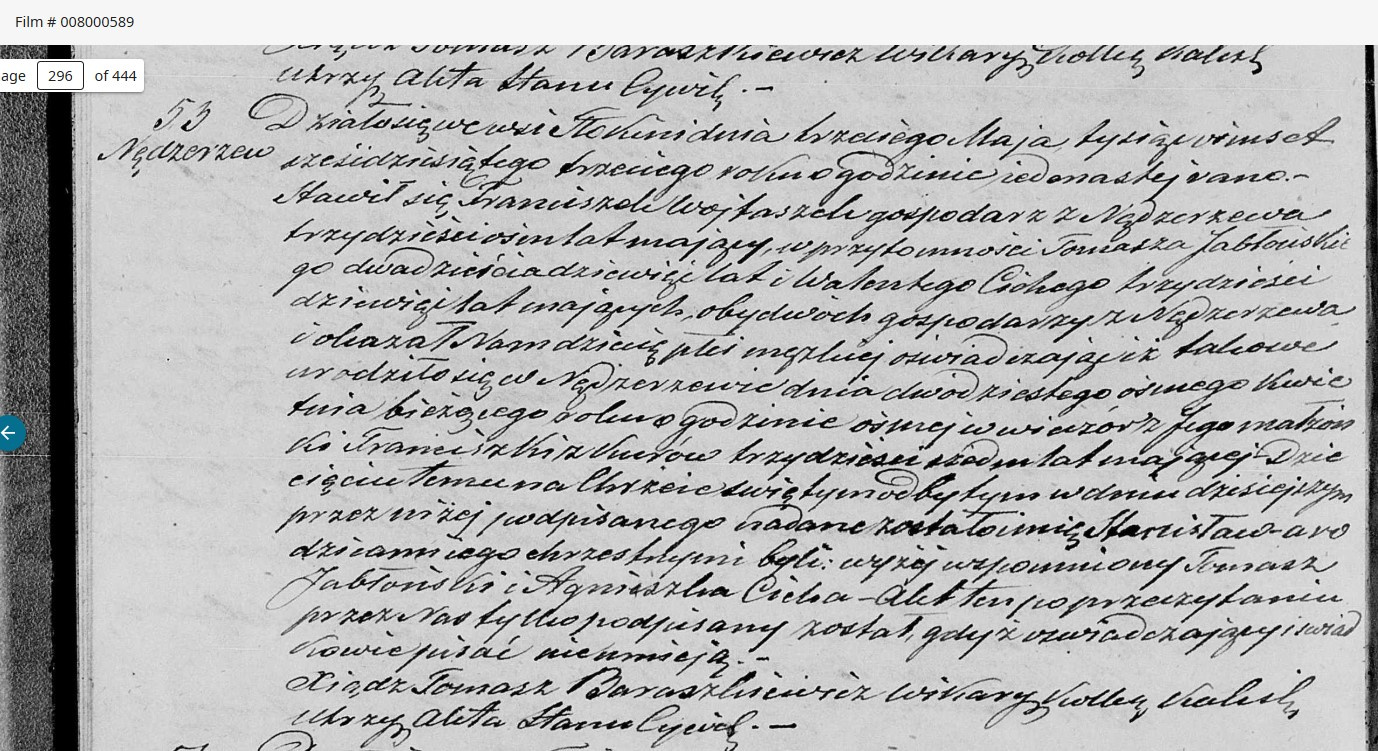 Film # 008000589
age 296 of 444
Xiądz Tomasz Baraszkiewicz Wikary Kolleg Kalisk
Utrzy Akta Stanu Cywil. —
53
Nędzerzew
Działo się we wsi Tłokini dnia trzeciego Maja, tysiąc ośmset
sześćdziesiątego trzeciego roku o godzinie jedenastej rano.—
Stawił się Franciszek Wojtaszek gospodarz z Nędzerzewa
trzydzieści ośm lat mający, w przytomności Tomasza Jabłońskie
go dwadzieścia dziewięć lat i Walentego Cichego trzydzieści
dziewięć lat mających, obydwóch gospodarzy z Nędzerzewa
i okazał Nam dziecię płci męzkiej oświadczając iż takowe
urodziło się w Nędzerzewie dnia dwódziestego ósmego Kwie
tnia bieżącego roku o godzinie ósmej w wieczór z jego małżon
ki Franciszki z trzydzieści siedm lat mającej Dzie
cięciu temu na Chrzcie świętym odbytym w dniu dzisiejszym
przez niżej podpisanego nadane zostało imię Stanisław a ro
dzicami jego chrzestnymi byli: wyżej wspomniony Tomasz
Jabłoński i Agnieszka Cicha – Akt ten po przeczytaniu
przez Nas tylko podpisany został, gdyż oświadczający i świad
kowie pisać nieumieją. –
Xiądz Tomasz Baraszkiewicz Wikary Kolleg Kalisk
Utrzy Akta Stanu Cywil. —